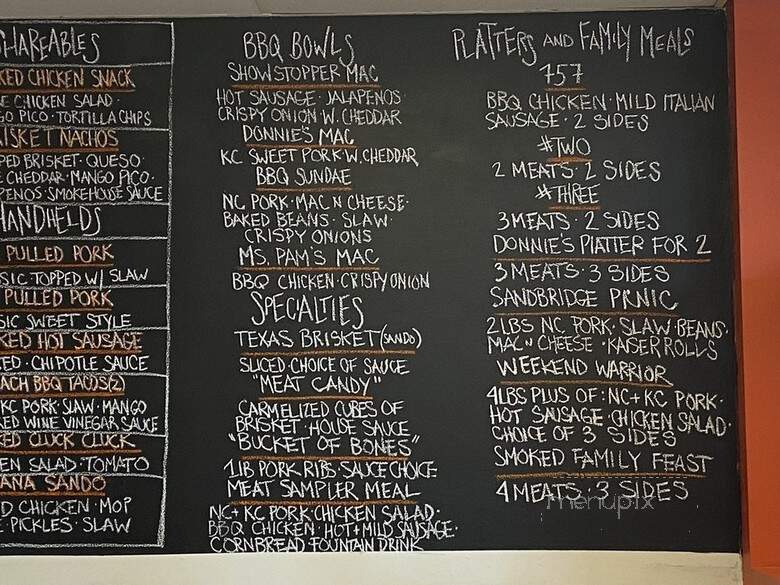 SHAREABLES
KED CHICKEN SNACK
E CHICKEN SALAD ·
GO PICO · TORTILLA CHIPS
ISKET NACHOS
PED BRISKET · QUESO ·
E CHEDDAR · MANGO PICO ·
PENOS · SMOKEHOUSE SAUCE
HANDHELDS
PULLED PORK
SIC TOPPED W/ SLAW
PULLED PORK
SIC SWEET STYLE
KED HOT SAUSAGE
ED · CHIPOTLE SAUCE
ACH BBQ TACOS (2)
KC PORK SLAW · MANGO
RED WINE VINEGAR SAUCE
KED CLUCK CLUCK
EN SALAD · TOMATO
ANA SANDO
D CHICKEN · MOP
E · PICKLES · SLAW
BBQ BOWLS
SHOWSTOPPER MAC
HOT SAUSAGE · JALAPENOS ·
CRISPY ONION W. CHEDDAR
DONNIE'S MAC
KC SWEET PORK W. CHEDDAR
BBQ SUNDAE
NC PORK · MAC N CHEESE ·
BAKED BEANS · SLAW ·
CRISPY ONIONS
MS. PAM'S MAC
BBQ CHICKEN · CRISPY ONION
SPECIALTIES
TEXAS BRISKET (SANDO)
SLICED · CHOICE OF SAUCE
"MEAT CANDY"
CARMELIZED CUBES OF
BRISKET · HOUSE SAUCE
"BUCKET OF BONES"
1 LB PORK RIBS · SAUCE CHOICE
MEAT SAMPLER MEAL
NC + KC PORK · CHICKEN SALAD ·
BBQ CHICKEN · HOT + MILD SAUSAGE ·
CORNBREAD FOUNTAIN DRINK
PLATTERS AND FAMILY MEALS
757
BBQ CHICKEN · MILD ITALIAN
SAUSAGE · 2 SIDES
#TWO
2 MEATS · 2 SIDES
#THREE
3 MEATS · 2 SIDES
DONNIE'S PLATTER FOR 2
3 MEATS · 3 SIDES
SANDBRIDGE PICNIC
2 LBS NC PORK · SLAW · BEANS ·
MAC N CHEESE · KAISER ROLLS
WEEKEND WARRIOR
4 LBS PLUS OF : NC + KC PORK ·
HOT SAUSAGE · CHICKEN SALAD ·
CHOICE OF 3 SIDES
SMOKED FAMILY FEAST
4 MEATS · 3 SIDES
menupix